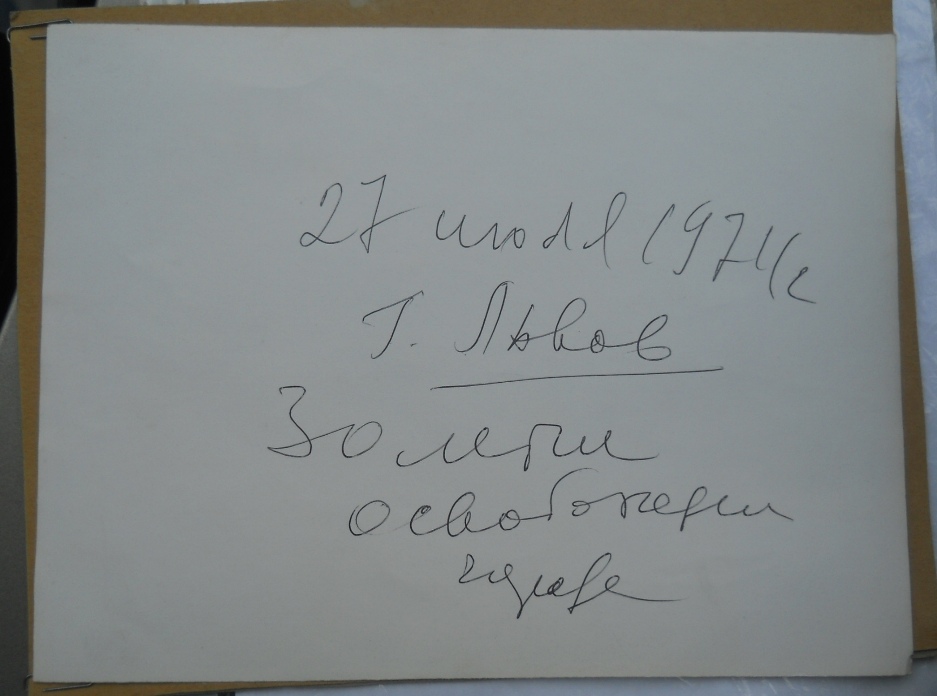 27 июля 1974 г
Г. Львов
30 летие
освобождения
города